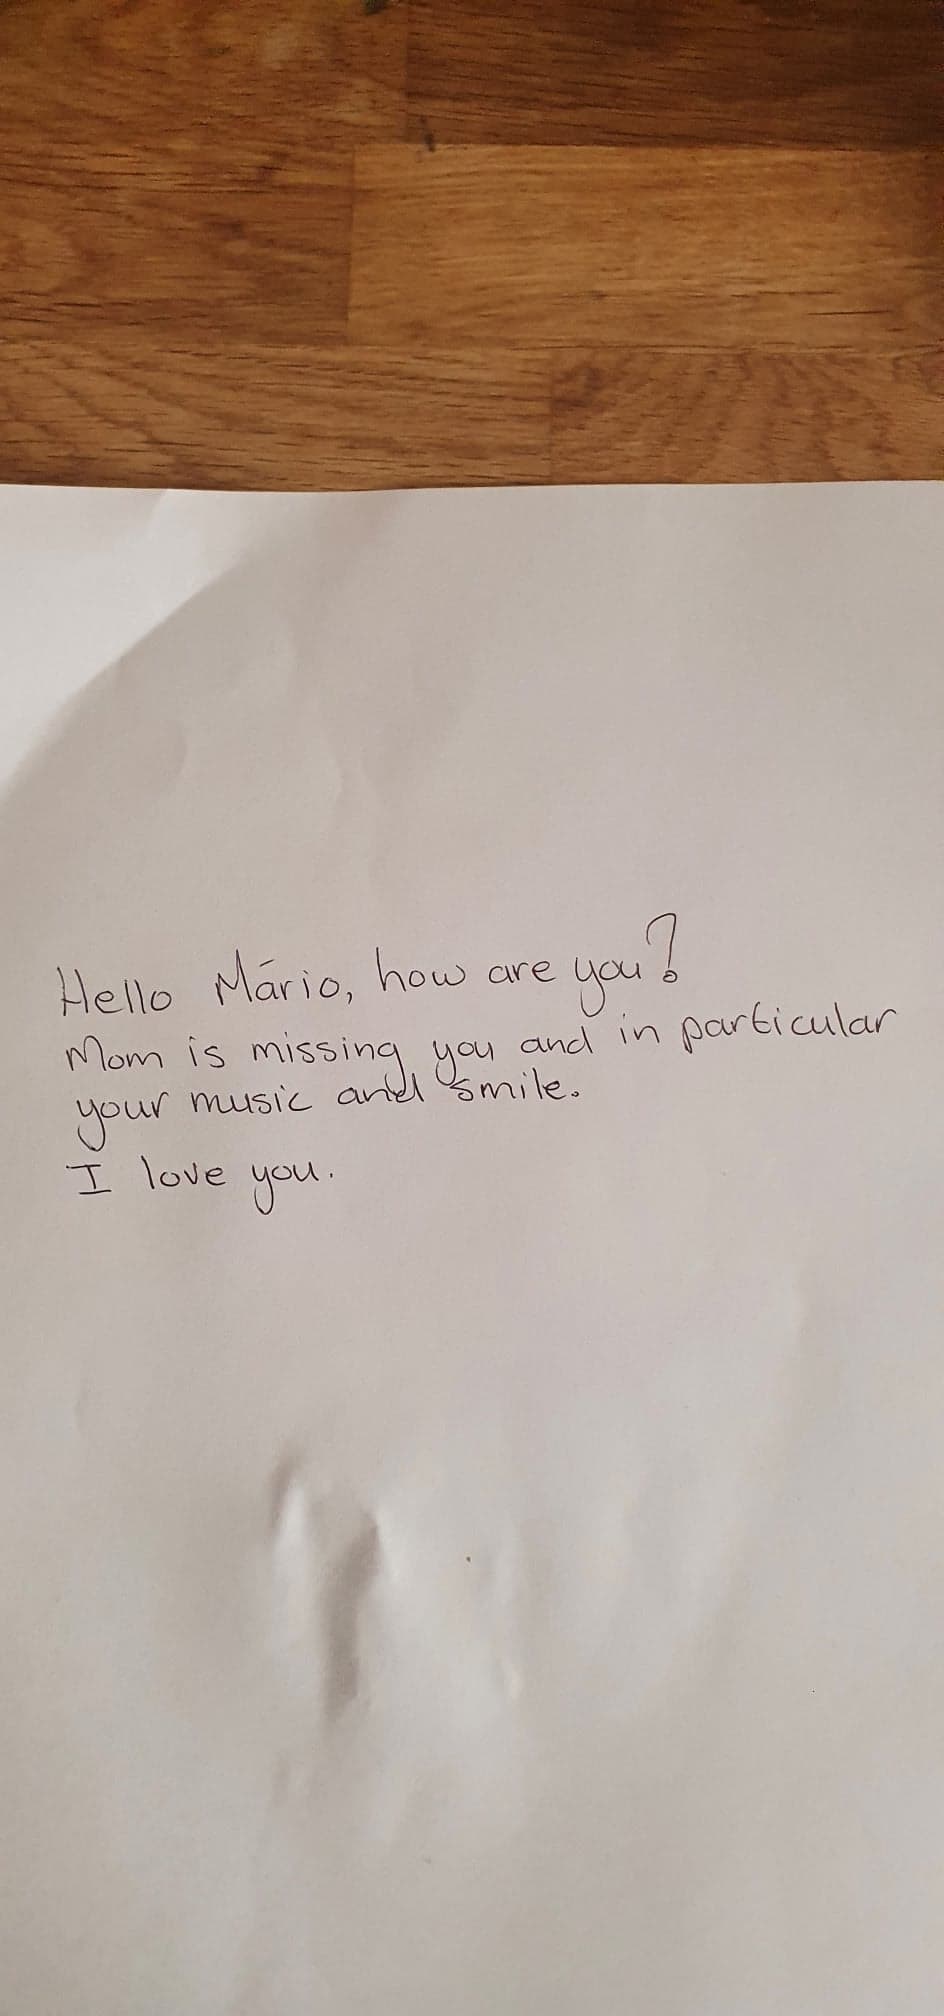 Hello Mário, how are you?
Mom is missing you and in particular
your music and smile.
I love you.